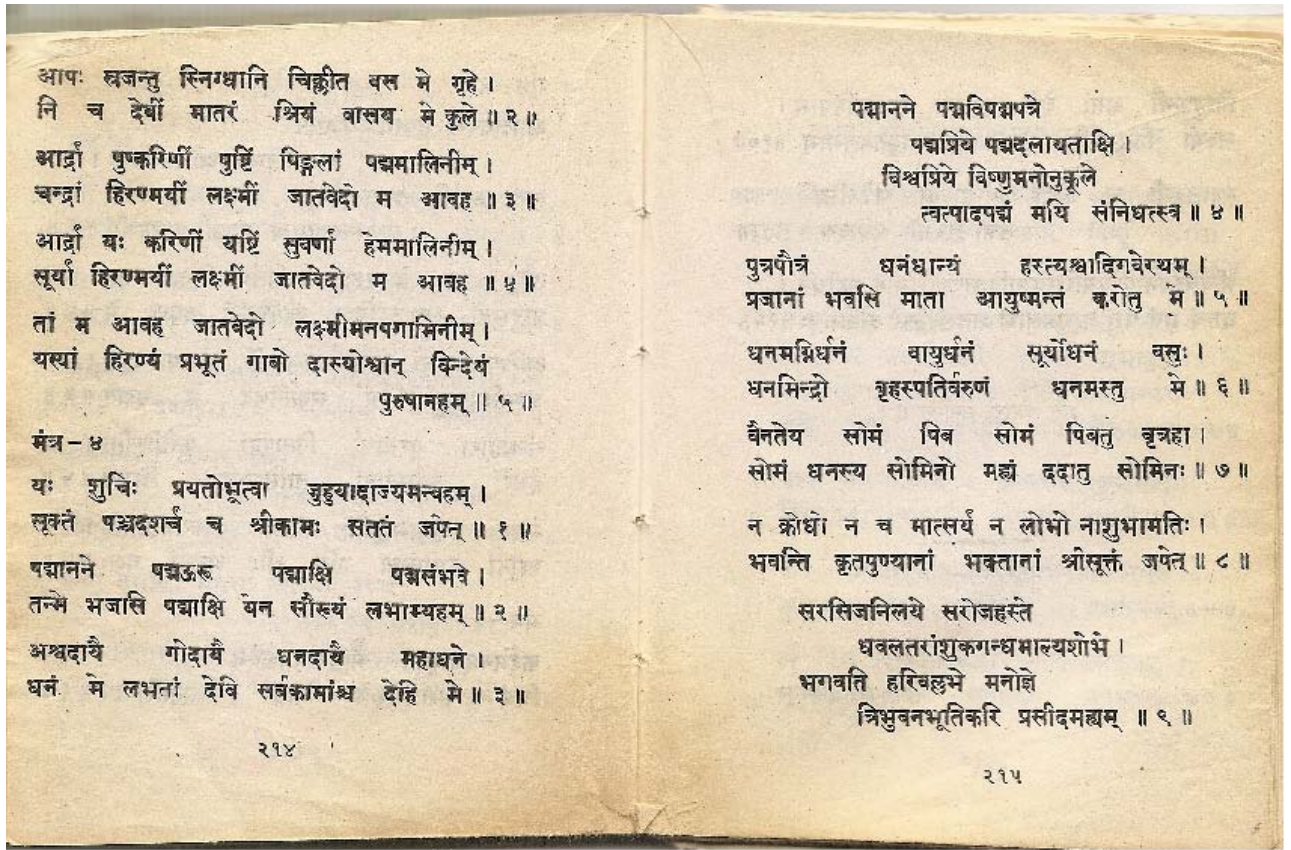 आपः स्रजन्तु स्निग्धानि चिक्लीत वस मे गृहे।
नि च देवीं मातरं श्रियं वासय मे कुले॥२॥
आर्द्रां पुष्करिणीं पुष्टिं पिङ्गलां पद्ममालिनीम्।
चन्द्रां हिरण्मयीं लक्ष्मीं जातवेदो म आवह॥३॥
आर्द्रां यः करिणीं यष्टिं सुवर्णां हेममालिनीम्।
सूर्यां हिरण्मयीं लक्ष्मीं जातवेदो म आवह॥४॥
तां म आवह जातवेदो लक्ष्मीमनपगामिनीम्।
यस्यां हिरण्यं प्रभूतं गावो दास्योश्वान् विन्देयं
पुरुषानहम्॥५॥
मंत्र-४
यः शुचिः प्रयतोभूत्वा जुहुयादाज्यमन्वहम्।
सूक्तं पञ्चदशर्चं च श्रीकामः सततं जपेत्॥१॥
पद्मानने पद्मऊरू पद्माक्षि पद्मसंभवे।
तन्मे भजासि पद्माक्षि येन सौख्यं लभाम्यहम्॥२॥
अश्वदायै गोदायै धनदायै महाधने।
धनं मे लभतां देवि सर्वकामांश्च देहि मे॥३॥
२१४
पद्मानने पद्मविपद्मपत्रे
पद्मप्रिये पद्मदलायताक्षि।
विश्वप्रिये विष्णुमनोनुकूले
त्वत्पादपद्मं मयि संनिधत्स्व॥४॥
पुत्रपौत्रं धनंधान्यं हस्त्यश्वादिगवेरथम्।
प्रजानां भवसि माता आयुष्मन्तं करोतु मे॥५॥
धनमग्निर्धनं वायुर्धनं सूर्योधनं वसुः।
धनमिन्द्रो बृहस्पतिर्वरुणं धनमस्तु मे॥६॥
वैनतेय सोमं पिब सोमं पिबतु वृत्रहा।
सोमं धनस्य सोमिनो मह्यं ददातु सोमिनः॥७॥
न क्रोधो न च मात्सर्यं न लोभो नाशुभामतिः।
भवन्ति कृतपुण्यानां भक्तानां श्रीसूक्तं जपेत्॥८॥
सरसिजनिलये सरोजहस्ते
धवलतरांशुकगन्धमाल्यशोभे।
भगवति हरिवल्लभे मनोज्ञे
त्रिभुवनभूतिकरि प्रसीदमह्यम्॥९॥
२१५